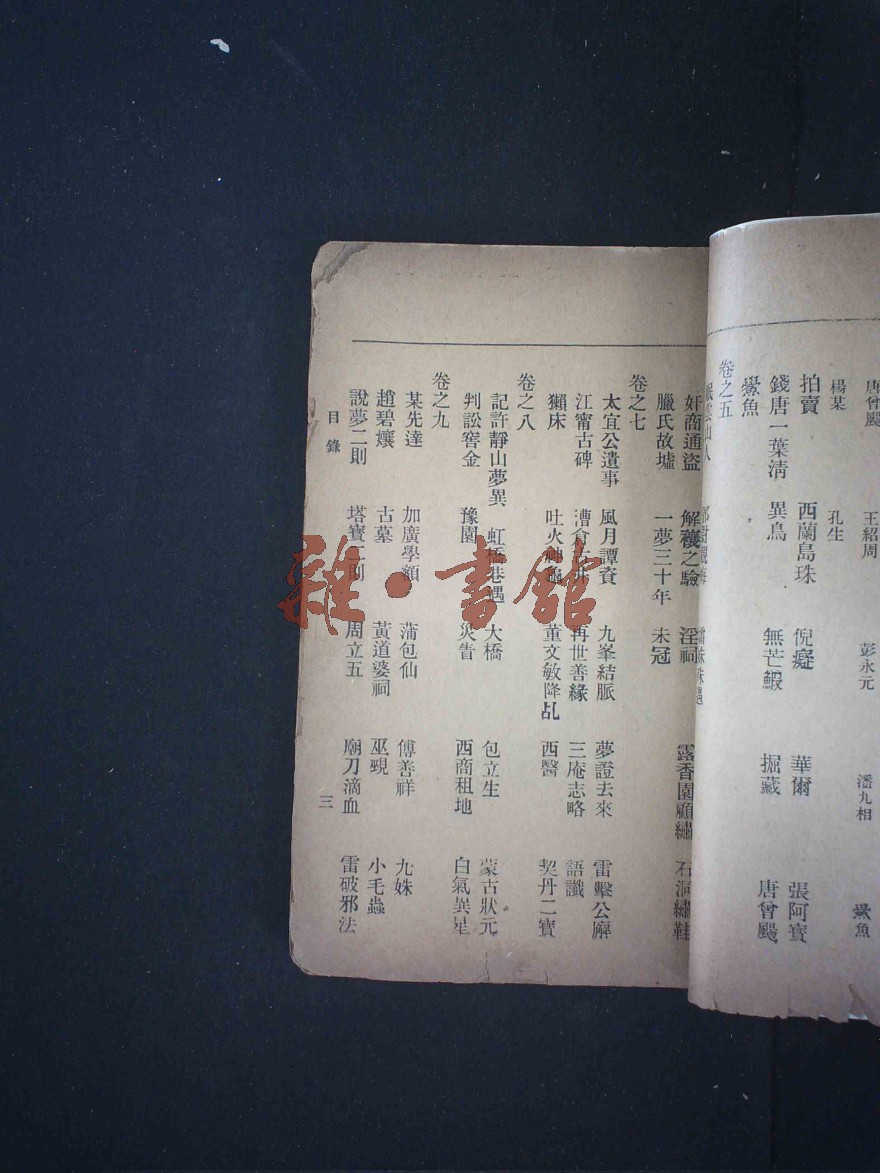 唐曾颺 王紹周 彭永元 潘九相 鱟魚
楊某 孔生
拍賣 西蘭島珠 倪癡 華爾 張阿寶
錢唐一葉淸 異鳥 無芒鰕 掘藏 唐曾颺
鱟魚
卷之五
奸商通盜 解穢之驗 淫祠 露香園顧繡 石洞繡鞋
臘氏故墟 一夢三十年 未冠
卷之七
太宜公遺事 風月譚資 九峯結脈 夢證去來 雷擊公廨
江甯古碑 漕倉 再世善緣 三庵志略 語讖
獺床 吐火神 董文敏降乩 西醫 契丹二寶
卷之八
記許靜山夢異 虹橋巷遇 大橋 包立生 蒙古狀元
判訟窖金 豫園 災眚 西商租地 白氣異星
卷之九
某先達 加廣學額 蒲包仙 傅善祥 九姝
趙碧孃 古墓 黃道婆祠 巫覡 小毛蟲
說夢二則 塔寶二則 周立五 廟刀滴血 雷破邪法
目錄 三
雜·書館